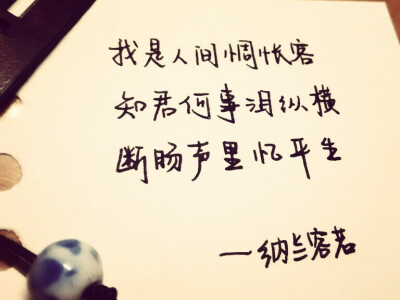 我是人间惆怅客
知君何事泪纵横
断肠声里忆平生
—纳兰容若